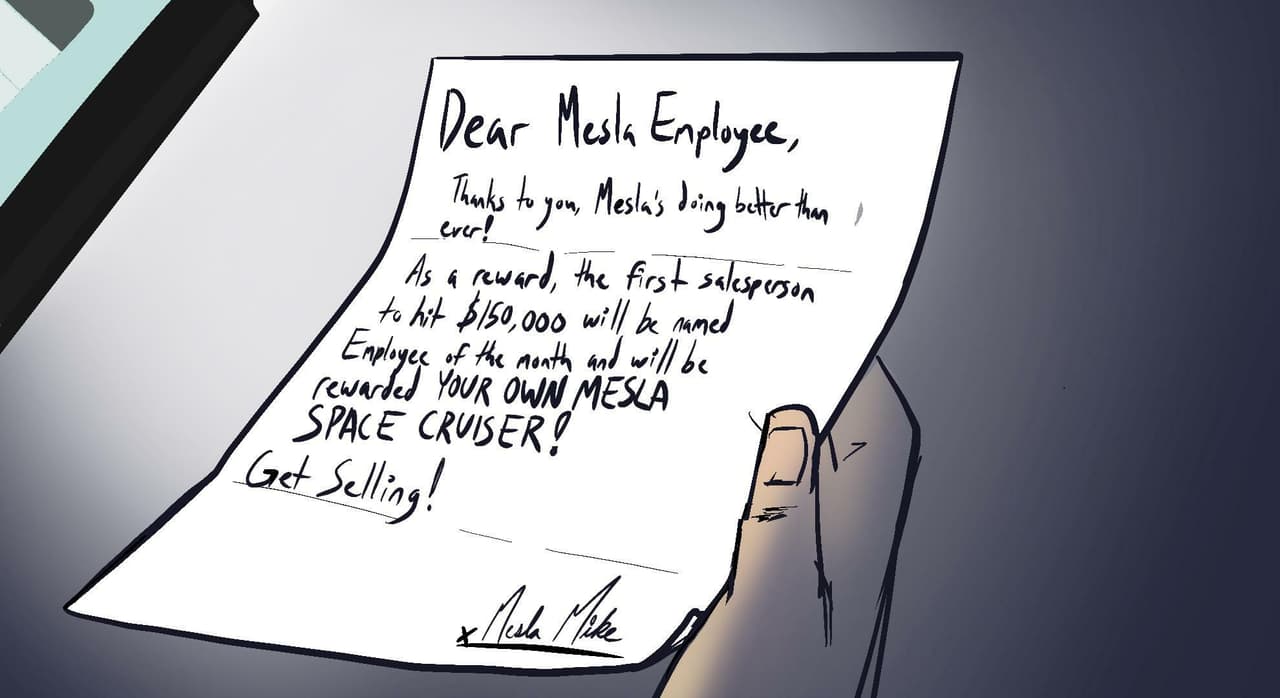 Dear Mesla Employee,
Thanks to you, Mesla's doing better than
ever!
As a reward, the first salesperson
to hit $150,000 will be named
Employee of the month and will be
rewarded YOUR OWN MESLA
SPACE CRUISER!
Get Selling!
x Mesla Mike